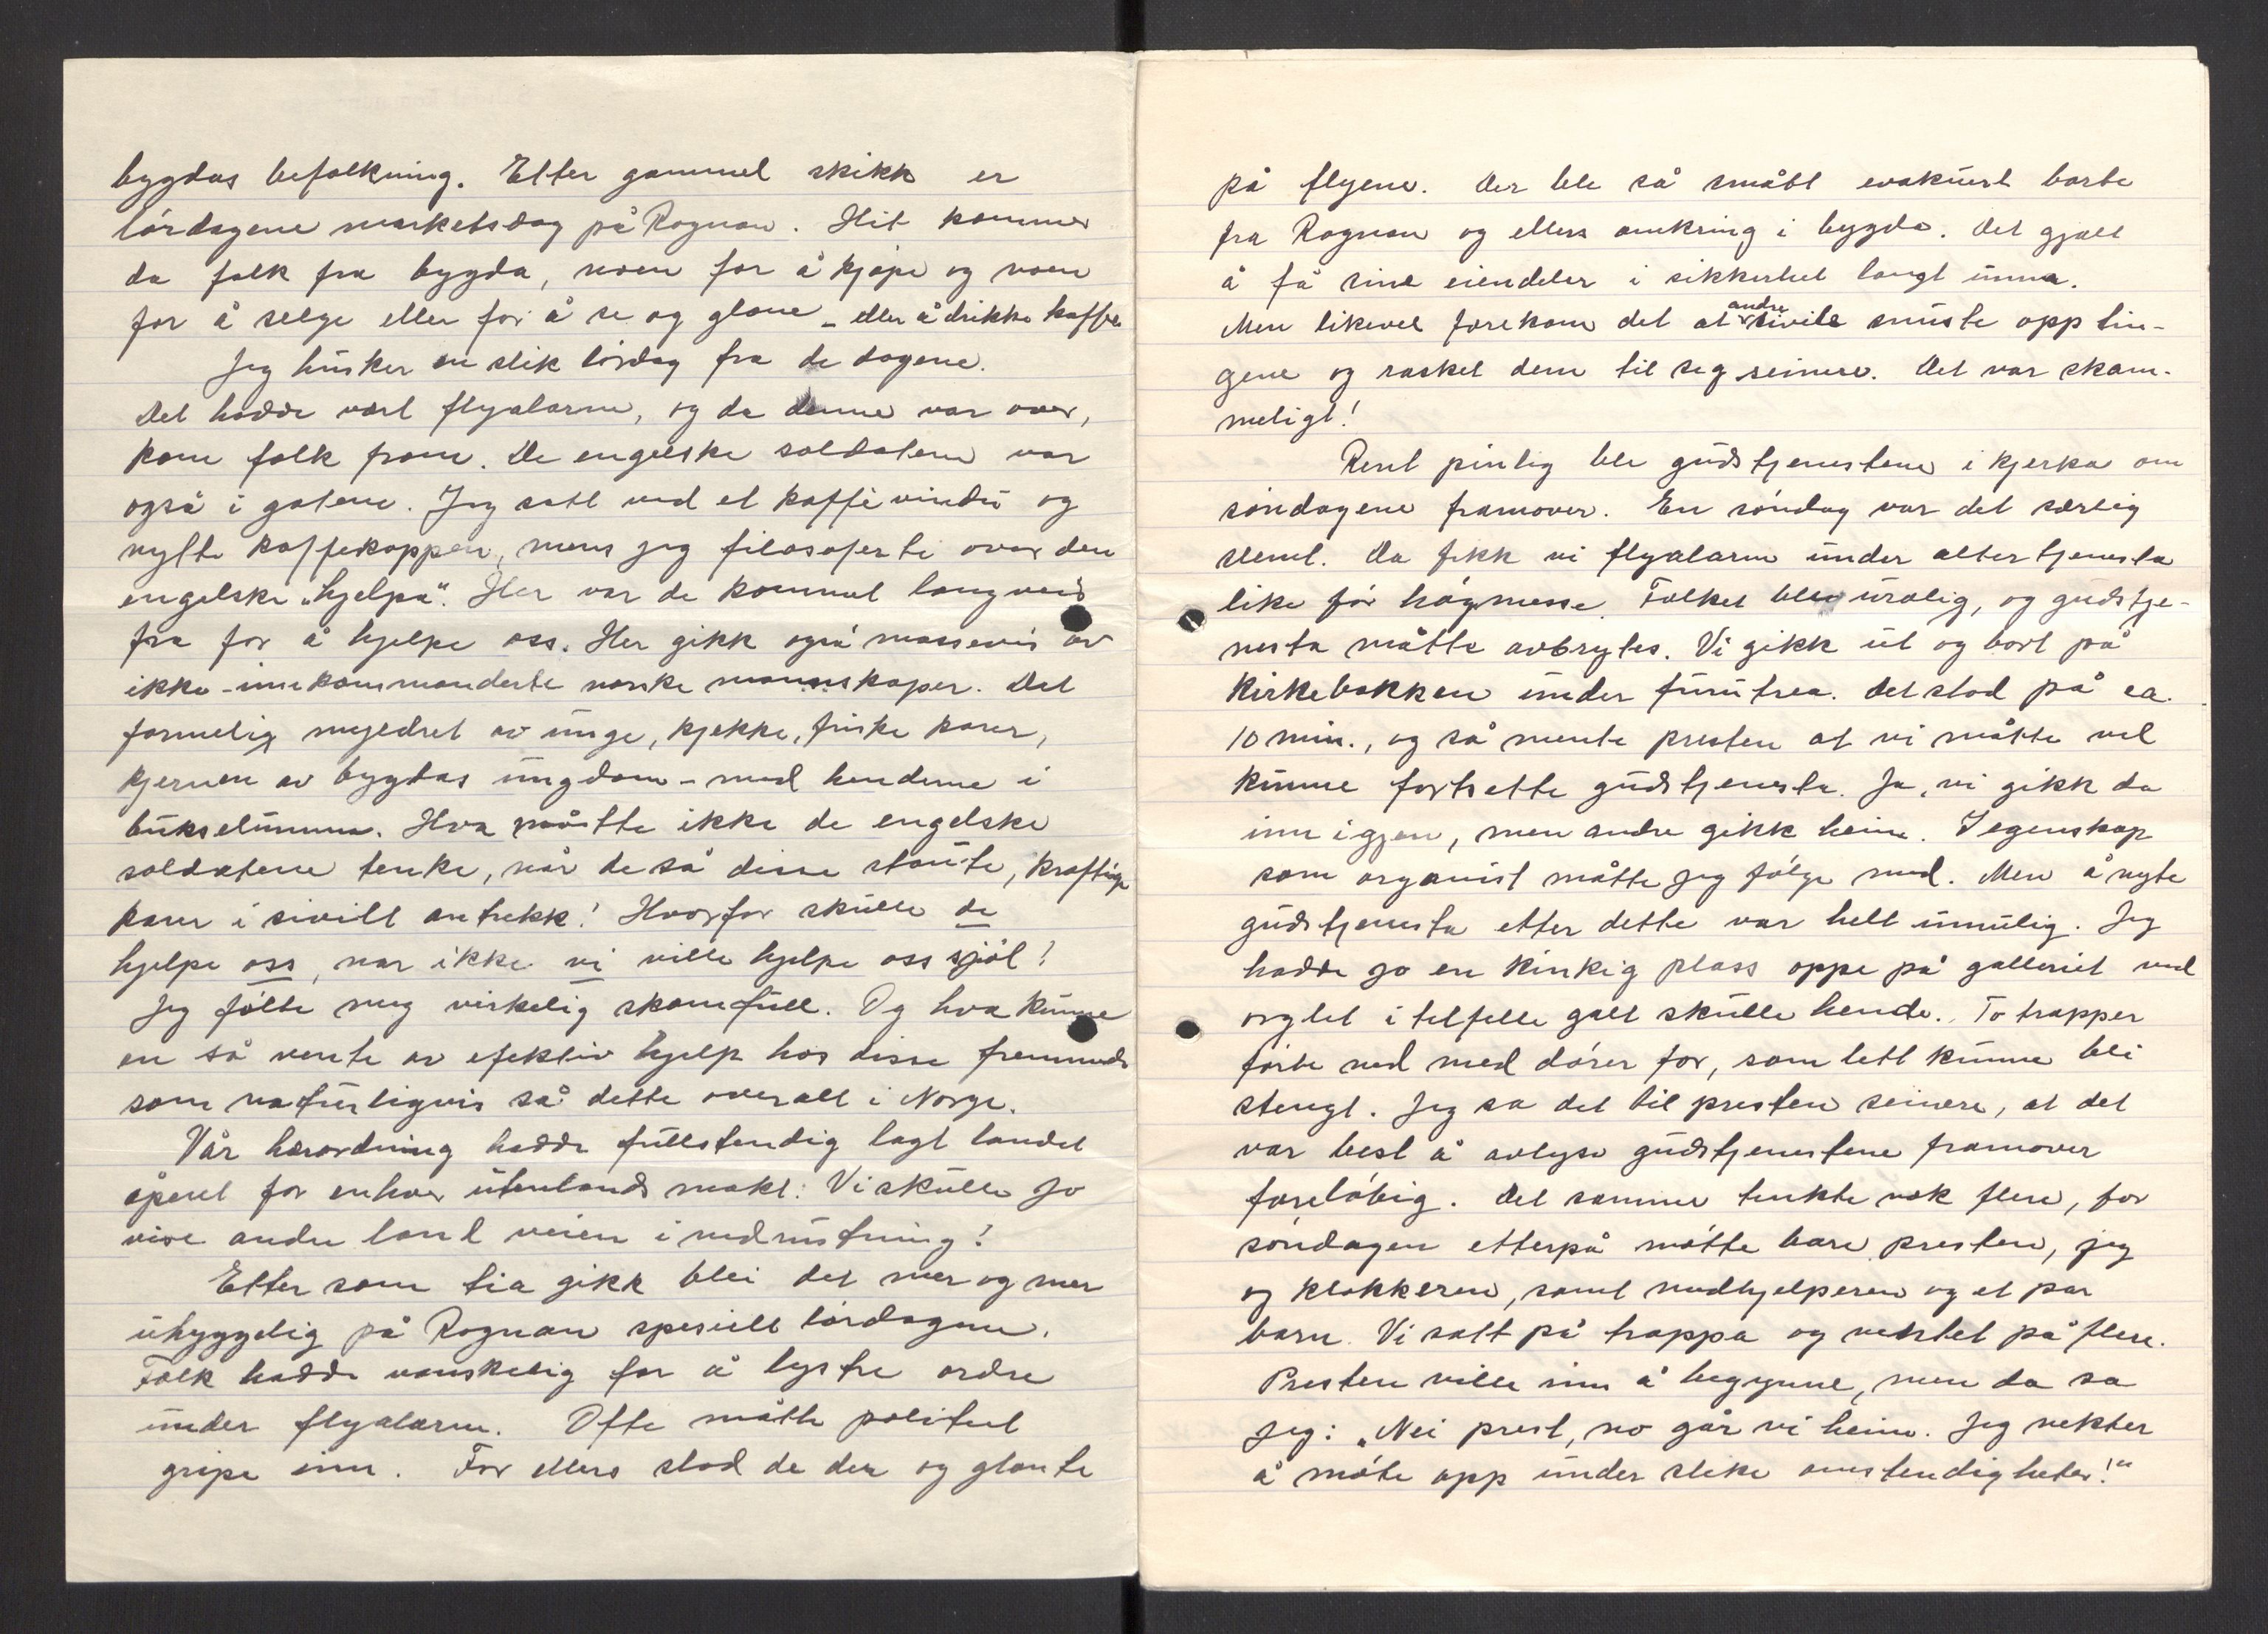 bygdas befolkning. Etter gammel skikk er
lördagene markedsdag på Rognan. Hit kommer
da folk fra bygda, noen for å kjøpe og noen
for å selge eller for å se og glane – eller å drikke kaffe
Jeg husker en slik lördag fra de dagene.
Det hadde vært flyalarm, og da denne var over,
kom folk fram. De engelske soldatene var
også i gatene. Jeg satt ved et kaffévindu og
nytte kaffekoppen, mens jeg filosoferte over den
engelske „hjelpa". Her var de kommet langveis
fra for å hjelpe oss. Her gikk også massevis av
ikke-innkommanderte norske mannskaper. Det
formelig myldret av unge, kjekke, friske karer,
kjernen av bygdas ungdom – med hendene i
bukselumma. Hva måtte ikke de engelske
soldatene tenke, når de så disse staute, kraftige
karer i sivilt antrekk! Hvorfor skulle de
hjelpe oss, når ikke vi ville hjelpe oss sjöl!
Jeg fölte meg virkelig skamfull. Og hva kunne
en så vente av efektiv hjelp hos disse fremmede
som naturligvis så dette overalt i Norge.
Vår hærordning hadde fullstendig lagt landet
åpent for enhver utenlands makt: Vi skulle jo
vise andre land veien i nedrustning!
Etter som tia gikk blei det mer og mer
uhyggelig på Rognan spesielt lördagene.
Folk hadde vanskelig for å lystre ordre
under flyalarm. Ofte måtte politiet
gripe inn. For ellers stod de der og glante
på flyene. Der ble så smått evakuert borte
fra Rognan og ellers omkring i bygda. Det gjaldt
å få sine eiendeler i sikkerhet langt unna.
Men likevel forekom det at andre sivile snuste opp tin-
gene og rasket dem til seg seinere. Det var skam-
meligt!
Rent pinlig ble gudstjenestene i kjerka om
söndagene framover. En söndag var det særlig
slemt. Da fikk vi flyalarm under altertjenesta
like för högmesse. Folket blei urolig, og gudstje-
nesta måtte avbrytes. Vi gikk ut og bort på
kirkebakken under furutrea. Det stod på ca.
10 min., og så mente presten at vi måtte vel
kunne fortsette gudstjenesta. Ja, vi gikk da
inn igjen, men andre gikk heim. I egenskap
som organist måtte jeg fölge med. Men å nyte
gudstjenesta etter dette var helt umulig. Jeg
hadde jo en kinkig plass oppe på galleriet ved
orglet i telfelle galt skulle hende. To trapper
förte ned med dörer for, som lett kunne bli
stengt. Jeg sa det til presten seinere, at det
var best å avlyse gudstjenestene framover
forelöbig. Det samme tenkte nok flere, for
söndagen etterpå mötte bare presten, jeg
og klokkeren, samt medhjelperen og et par
barn. Vi satt på trappa og ventet på flere.
Presten ville inn å begynne, men da sa
jeg: „Nei prest, no går vi heim. Jeg nekter
å möte opp under slike omstendigheter!"